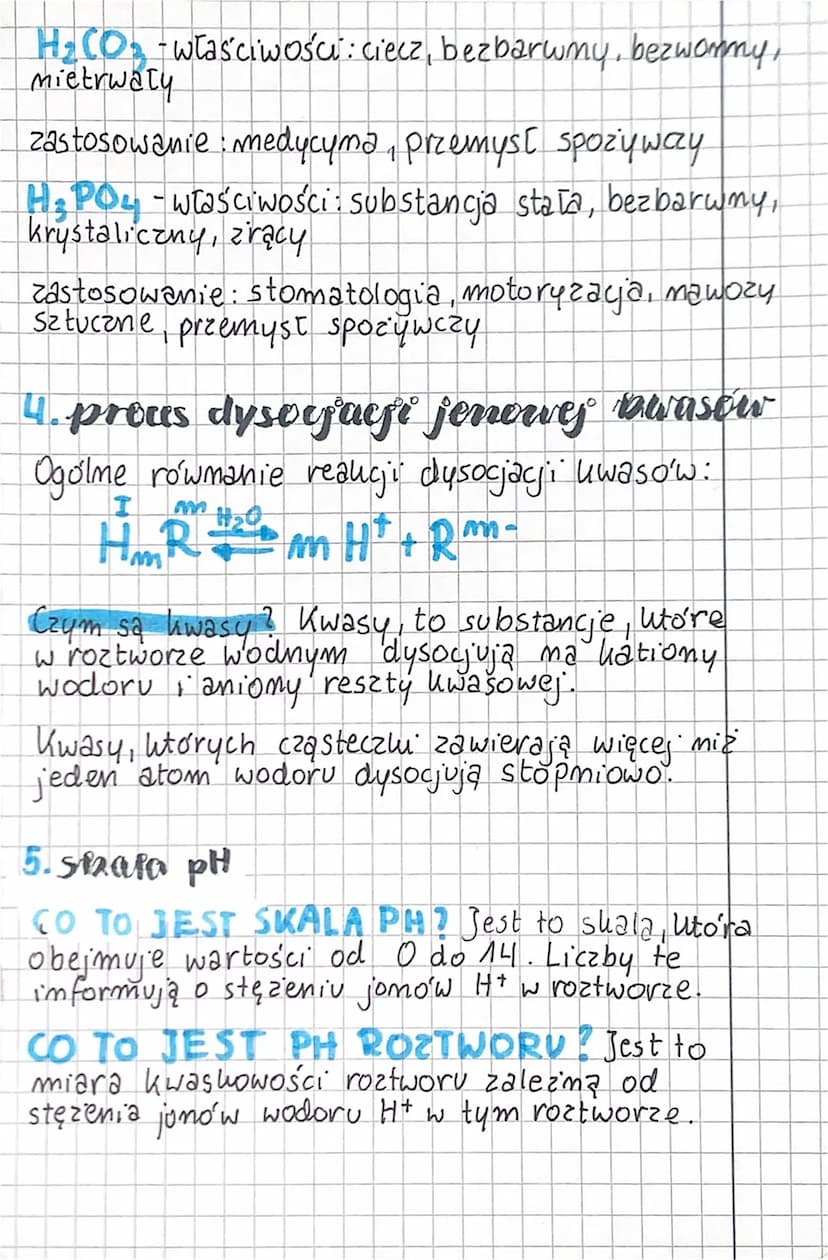 H₂CO₃ - właściwości: ciecz, bezbarwny, bezwonny,
nietrwały
zastosowanie: medycyna, przemysł spożywczy
H₃PO₄ - właściwości: substancja stała, bezbarwny,
krystaliczny, żrący
zastosowanie: stomatologia, motoryzacja, nawozy
sztuczne, przemysł spożywczy
4. proces dysocjacji jonowej kwasów
Ogólne równanie reakcji dysocjacji kwasów:
I n H₂O
HₙR ⇄ n H⁺ + Rⁿ⁻
Czym są kwasy? Kwasy, to substancje, które
w roztworze wodnym dysocjują na kationy
wodoru i aniony reszty kwasowej.
Kwasy, których cząsteczki zawierają więcej niż
jeden atom wodoru dysocjują stopniowo.
5. skala pH
CO TO JEST SKALA PH? Jest to skala, która
obejmuje wartości od 0 do 14. Liczby te
informują o stężeniu jonów H⁺ w roztworze.
CO TO JEST PH ROZTWORU? Jest to
miara kwaskowości roztworu zależną od
stężenia jonów wodoru H⁺ w tym roztworze.